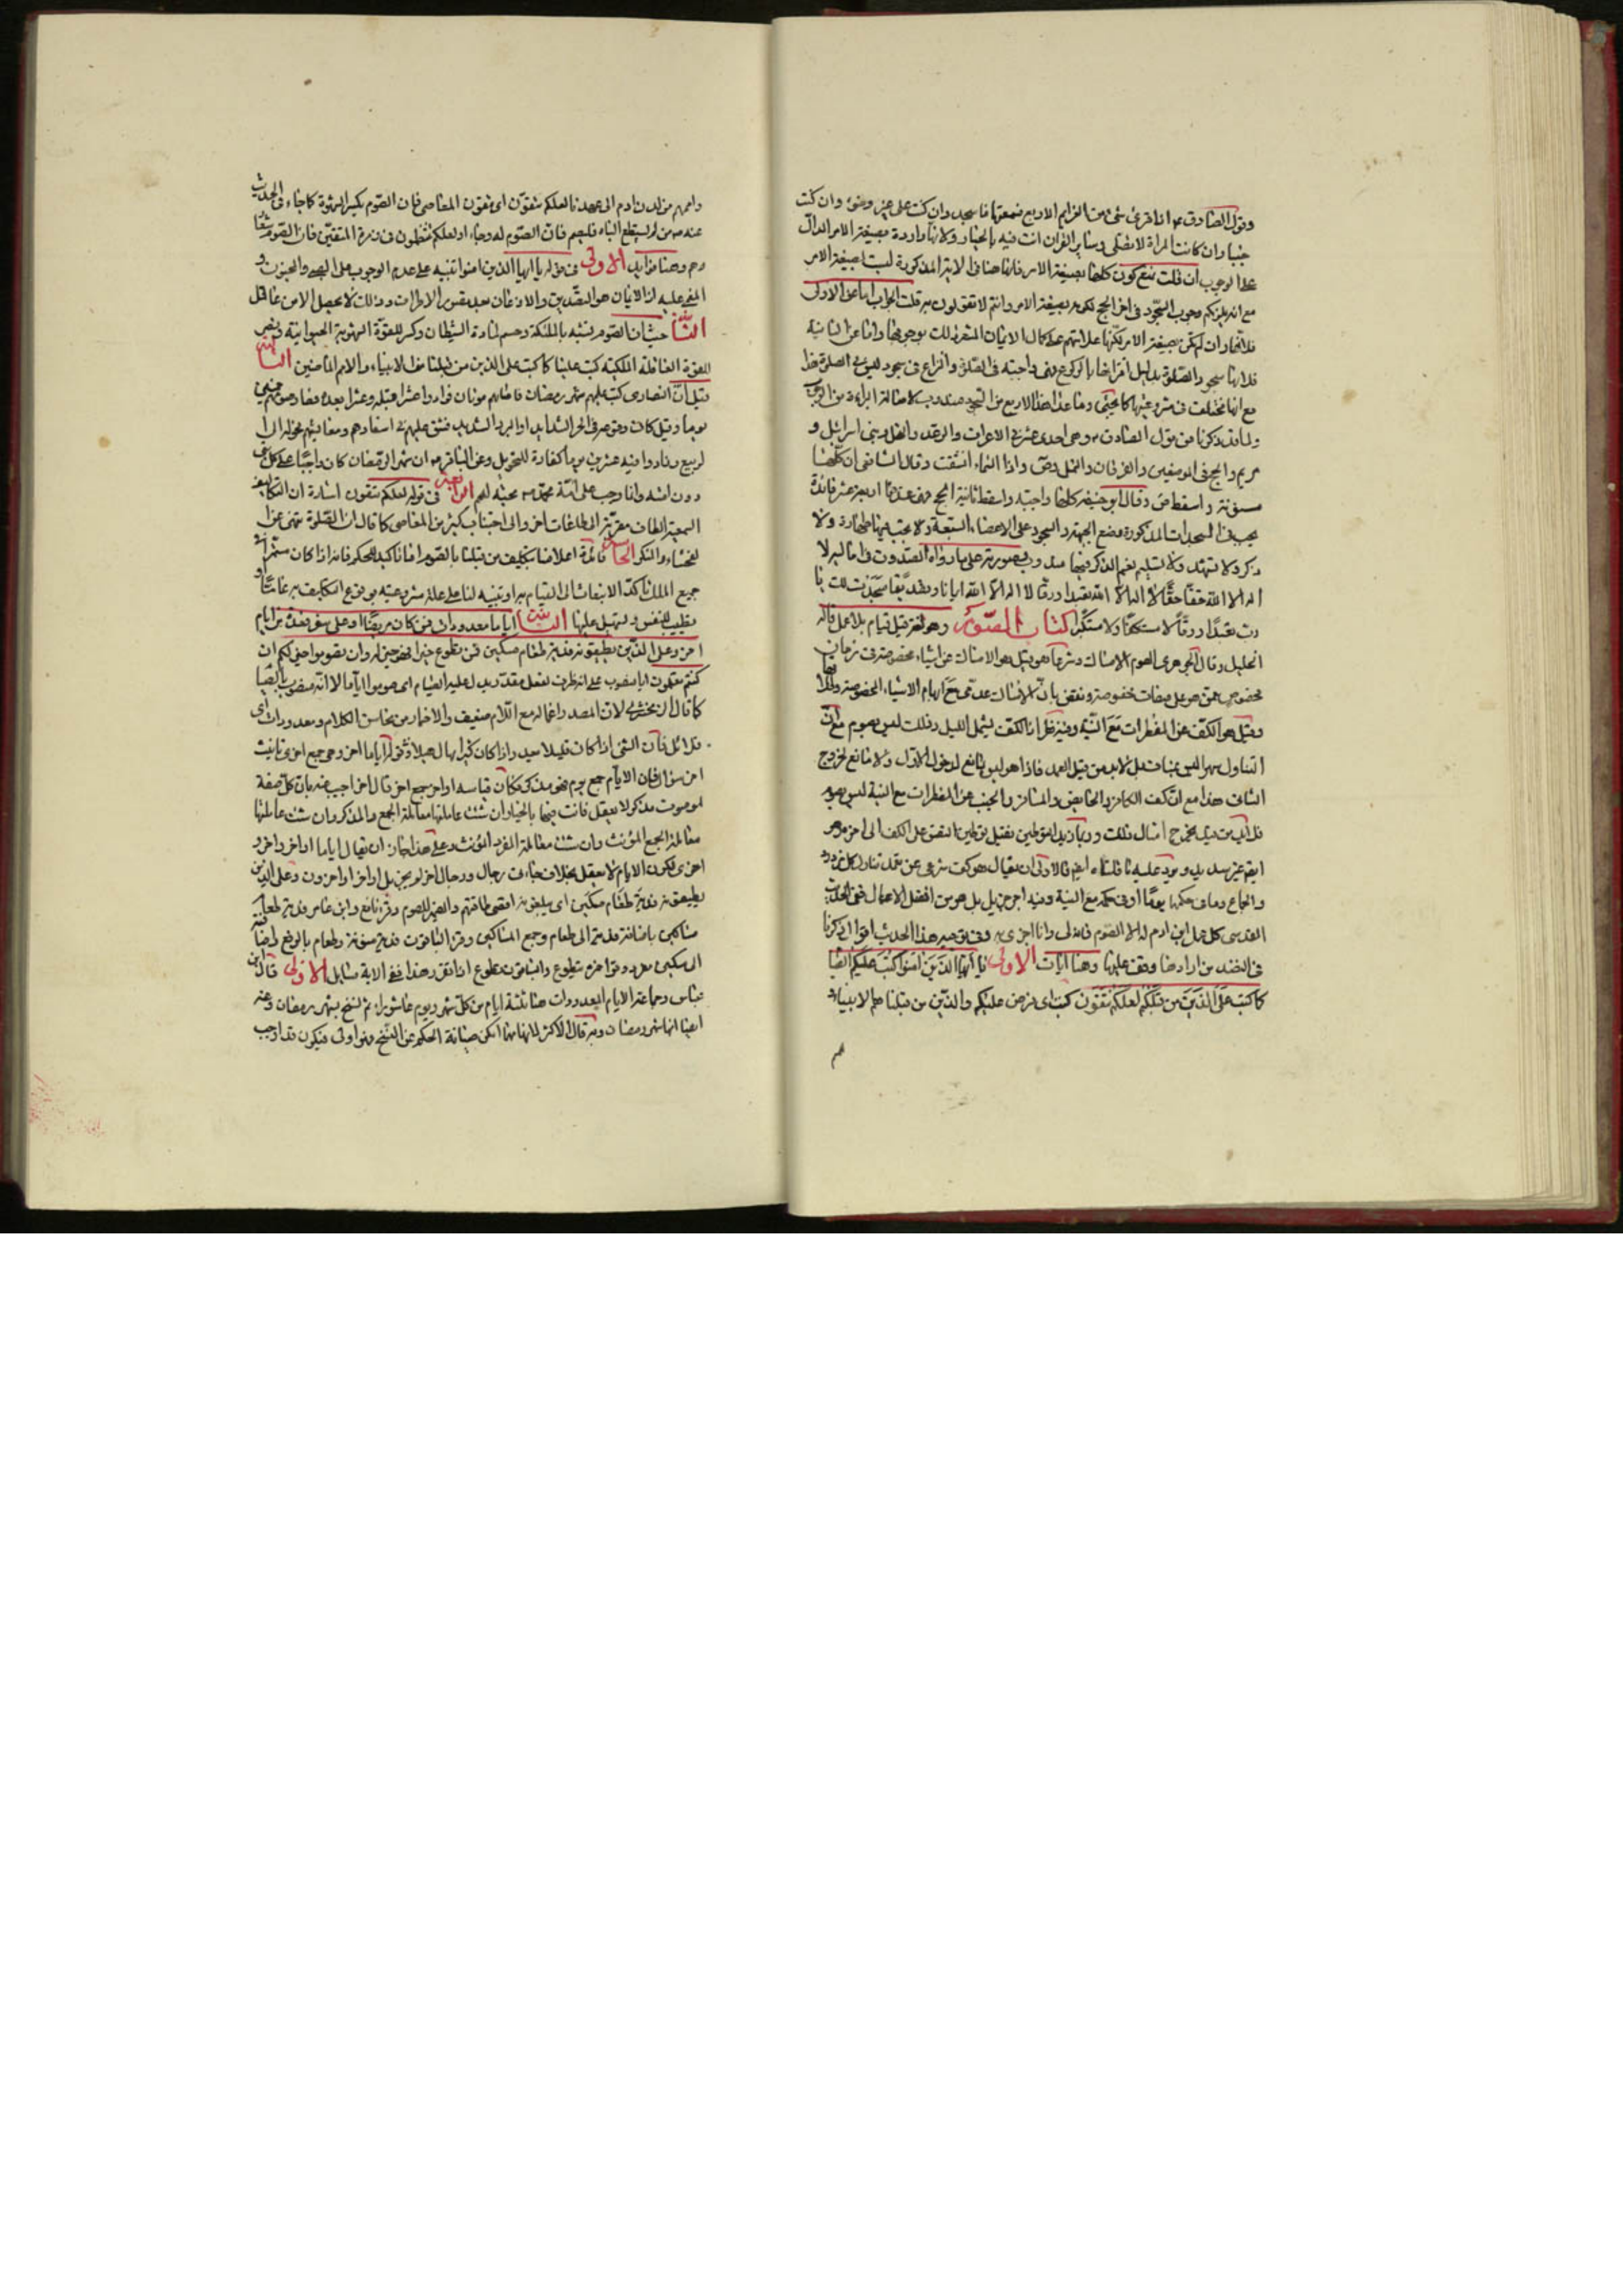 وقول الصادق ع اذا قرئ شئ من العزايم الاربع فسمعتها فاسجد وان كنت على غير وضوء وان كنت
جنبا وان كانت المراة لا تصلى وساير القران انت فيه بالخيار ولانها واردة بصيغة الامر الدال
على الوجوب ان قلت نمنع كون كلها بصيغة الامر فانها هنا فى الاية المذكورة ليست بصيغة الامر
مع انه يلزمكم وجوب السجود فى اخر الحج لكونه بصيغة الامر وانتم لا تقولون به قلت الجواب اما عن الاولى
فلانها وان لم تكن بصيغة الامر لكنها علامة على كمال الايمان المشعر ذلك بوجوبها واما عن الثانية
فلانها سجود الصلوة بدليل اقترانها بالركوع فهى واجبة فى الصلوة والنزاع فى سجود ليس فى الصلوة هذا
مع انها تخلفت فى مشروعيتها كما يجئ وما عدا هذه الاربع من السجود مندوب لاصالة البراءة من الوجوب
ولما قد ذكرنا من قول الصادق ع وهى احدى عشرة فى الاعراف والرعد والنحل وبنى اسرائيل و
مريم والحج فى الموضعين والفرقان والنمل وص واذا السماء انشقت وقال الشافعى ان كلها
مسنونة واسقط ص وقال ابو حنيفة كلها واجبة واسقط ثانية الحج فهى عندهما اربع عشر فائدة
يجب فى السجدات المذكورة وضع الجبهة والسجود على الاعضاء السبعة ولا يجب فيها طهارة ولا
ذكر ولا تشهد ولا تسليم نعم الذكر فيها مندوب وصورته على ما رواه الصدوق فى اماليه لا
اله الا الله حقا حقا لا اله الا الله تعبدا ورقا لا اله الا الله ايمانا وتصديقا سجدت لك يا
رب تعبدا ورقا لا مستنكفا ولا مستكبرا كتاب الصوم وهو لغة قيل قيام بلا عمل قاله
الخليل وقال الجوهرى الصوم الامساك وشرعا هو قيل هو الامساك عن اشياء مخصوصة فى زمان
مخصوص ممن هو على صفات مخصوصة ونقض بان الامساك عدمى مع ابهام الاشياء المخصوصة والمراد بها
وقيل هو الكف عن المفطرات مع النية وفيه نظر اذ الكف يشمل الليل وذلك ليس بصوم مع ان
التناول سهوا ليس بمناف بل لا بد من قيد العمد فاذا هو ليس بمانع لدخول الاول ولا مانع لخروج
الثانى هذا مع ان كف الكافر والحائض والمسافر والجنب عن المفطرات مع النية ليس بصوم
فلا بد من قيد يخرج امثال ذلك وربما زيد التوطين فقيل توطين النفس على الكف الى اخره وهو
ايضا غير سديد ويرد عليه ما قلناه ايضا فالاولى ان يقال هو كف شرعى عن تعمد تناول كل مزدرد
والجماع وما فى حكمها يوما او فى حكمه مع النية وفيه اجر جزيل بل هو من افضل الاعمال ففى الحديث
القدسى كل عمل ابن ادم له الا الصوم فانه لى وانا اجزى به وفى توجيه هذا الحديث اقوال ذكرنا
فى النضد من ارادها وقف عليها وهنا ايات الاولى يا ايها الذين امنوا كتب عليكم الصيام
كما كتب على الذين من قبلكم لعلكم تتقون كتب اى فرض عليكم والذين من قبلنا هم الانبياء و
وامهم من لدن ادم الى عهدنا لعلكم تتقون اى تتقون المعاصى فان الصوم يكسر الشهوة كما جاء فى الحديث
عنه ص من لم يستطع الباه فليصم فان الصوم له وجاء او لعلكم تنتظمون فى زمرة المتقين فان الصوم شعا
رهم وهنا فوائد الاولى فى قوله يا ايها الذين امنوا تنبيه على عدم الوجوب على الصبى والمجنون و
المغمى عليه اذ الايمان هو التصديق والاذعان بعد تصور الاطراف وذلك لا يحصل الا من عاقل
الثانية حيث ان الصوم فيه تشبه بالملئكة وحسم لمادة الشيطان وكسر للقوة الشهوية الحيوانية ونصر
للقوة العاقلة الملكية كتب علينا كما كتب على الذين من قبلنا من الانبياء والامم الماضين الثالثة
قيل ان النصارى كتب عليهم شهر رمضان فاصابهم موتان فزادوا عشرا قبله وعشرا بعده فصار صومهم خمسين
يوما وقيل كان وقوعه فى الحر الشديد او البرد الشديد فشق عليهم فى اسفارهم ومعايشهم فحولوه الى
الربيع وزادوا فيه عشرين يوما كفارة للتحويل وعن الباقر ع ان شهر رمضان كان واجبا على كل نبى
دون امته وانما وجب على امة محمد ص محبة لهم الرابعة فى قوله لعلكم تتقون اشارة ان التكاليف
السمعية الطاف مقربة الى طاعات اخر والى اجتناب كثير من المعاصى كما قال ان الصلوة تنهى عن ا
لفحشاء والمنكر الخامسة فائدة اعلامنا بتكليف من قبلنا بالصوم اما تاكيد للحكم فانه اذا كان مستمرا فى
جميع الملل تاكد الانبعاث الى القيام به او تنبيه لنا على علة مشروعيته بوقوع التكليف به عاما او
تطييب للنفس وتسهيل عليها الثانية اياما معدودات فمن كان مريضا او على سفر فعدة من ايام
اخر وعلى الذين يطيقونه فدية طعام مسكين فمن تطوع خيرا فهو خير له وان تصوموا خير لكم ان
كنتم تعلمون اياما منصوب على انه ظرف لفعل مقدر يدل عليه الصيام اى صوموا اياما لا انه منصوب بالصيام
كما قال الزمخشرى لان المصدر اعماله مع اللام ضعيف والاضمار من محاسن الكلام ومعدودات اى
قلائل فان الشئ اذا كان قليلا يعد واذا كان كثيرا يهال هيلا وقوله اياما اخر وهى جمع اخرى تانيث
اخر سؤال فان الايام جمع يوم فهو مذكر فكان قياسه اواخر جمع اخر قال اخر اجيب عنه بان كل صفة
لموصوف مذكر لا يعقل فانت فيها بالخيار ان شئت عاملتها معاملة الجمع المذكر وان شئت عاملتها
معاملة الجمع المؤنث وان شئت معاملة المفرد المؤنث وعلى هذا جاز ان يقال اياما اواخر واخر و
اخرى لكون الايام لا يعقل بخلاف جاءنى رجال ورجال اخر لم يجز بل اواخر او اخرون وعلى الذين
يطيقونه فدية طعام مسكين اى يبلغونه اقصى طاقتهم والضمير للصوم وقرء نافع وابن عامر فدية طعام
مساكين باضافة فدية الى طعام وجمع المساكين وقرء الباقون فدية منونة وطعام بالرفع مضافا
الى مسكين مفرد وقرء حمزة يتطوع والباقون تطوع اذا تقرر هذا ففى الاية مسايل الاولى قال ابن
عباس وجماعة الايام المعدودات هنا ثلثة ايام من كل شهر ويوم عاشوراء ثم نسخ بشهر رمضان وعنه
ايضا انها شهر رمضان وبه قال الاكثر لانها مهما امكن صيانة الحكم عن النسخ فهو اولى فيكون قد اوجب